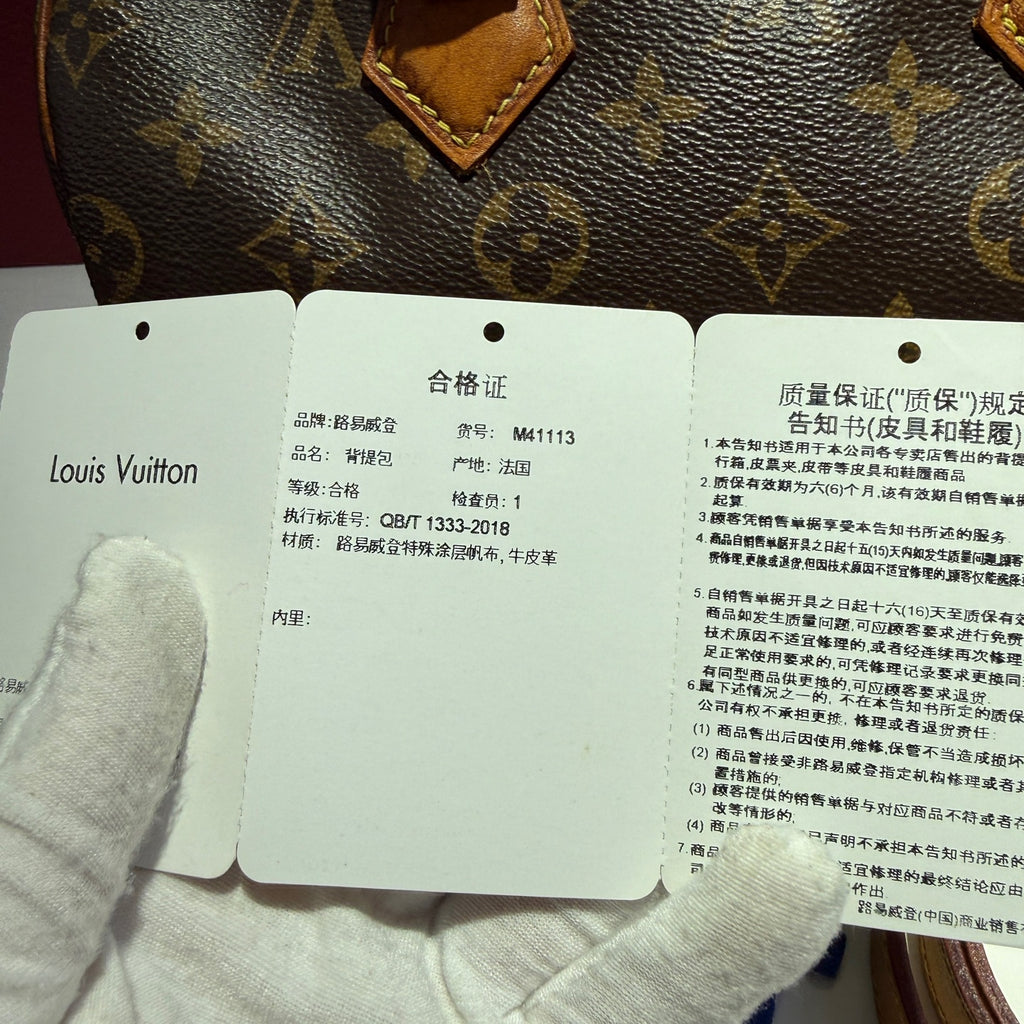 Louis Vuitton
合格证
品牌:路易威登 货号: M41113
品名: 背提包 产地: 法国
等级:合格 检查员: 1
执行标准号: QB/T 1333-2018
材质: 路易威登特殊涂层帆布, 牛皮革
内里:
质量保证("质保")规定
告知书(皮具和鞋履)
1.本告知书适用于本公司各专卖店售出的背提
行箱,皮票夹,皮带等皮具和鞋履商品
2.质保有效期为六(6)个月,该有效期自销售单据
起算.
3.顾客凭销售单据享受本告知书所述的服务.
4.商品自销售单据开具之日起十五(15)天内如发生质量问题,顾客
费修理,更换或退货,但因技术原因不适宜修理的,顾客仅能选择
5.自销售单据开具之日起十六(16)天至质保有效
商品如发生质量问题,可应顾客要求进行免费
技术原因不适宜修理的,或者经连续再次修理
足正常使用要求的,可凭修理记录要求更换同
有同型商品供更换的,可应顾客要求退货.
6.属下述情况之一的, 不在本告知书所定的质保
公司有权不承担更换, 修理或者退货责任:
(1) 商品售出后因使用,维修,保管不当造成损坏
(2) 商品曾接受非路易威登指定机构修理或者其
置措施的;
(3) 顾客提供的销售单据与对应商品不符或者存
改等情形的;
(4) 商品 声明不承担本告知书所述的
7.商品 适宜修理的最终结论应由
司 作出.
路易威登(中国)商业销售
路易威